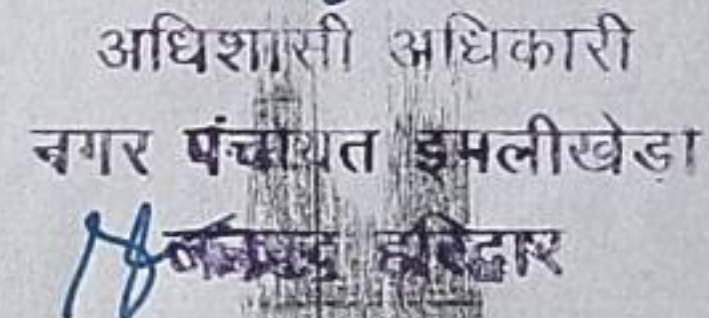 अधिशासी अधिकारी
नगर पंचायत इमलीखेड़ा
जनपद हरिद्वार